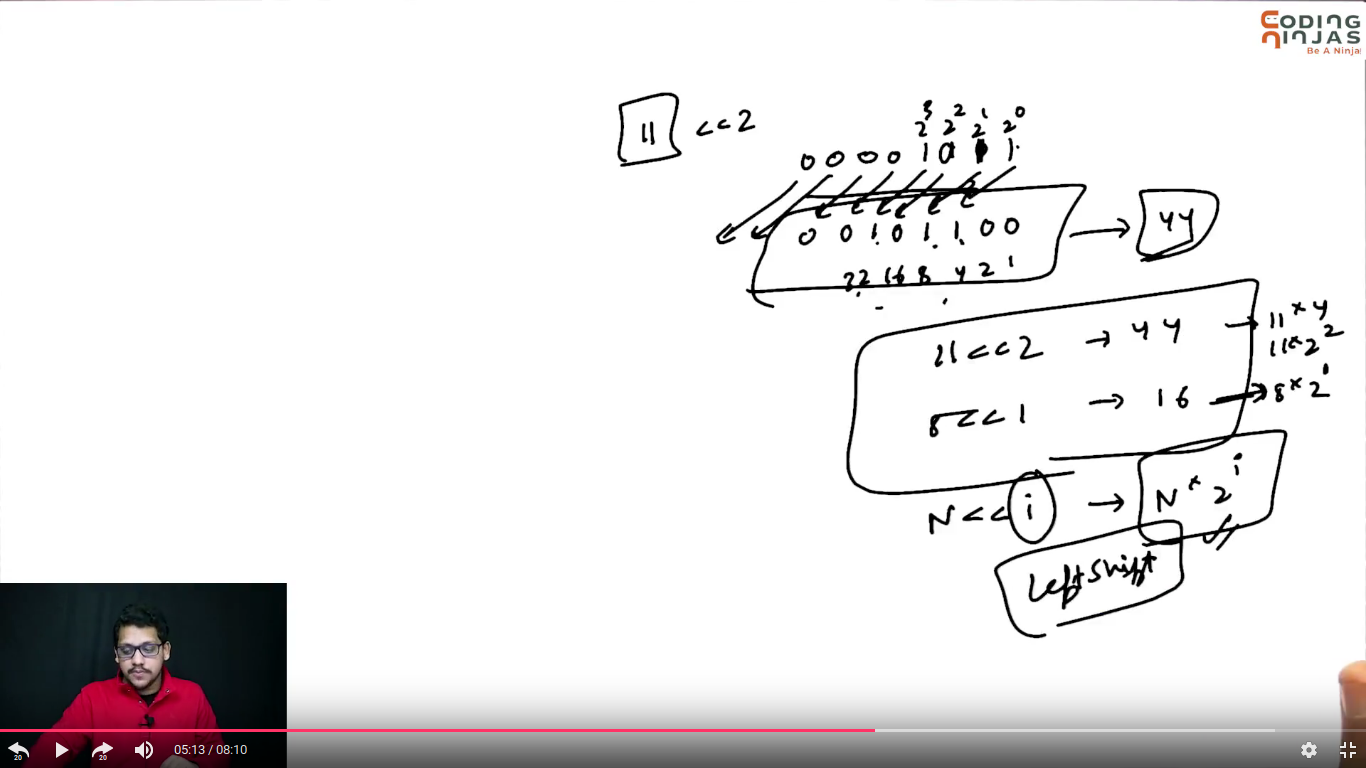 CODING
NINJAS
Be A Ninja
11 <<2
2^3 2^2 2^1 2^0
0 0 0 0 1 0 1 1
0 0 1 0 1 1 0 0 → 44
32 16 8 4 2 1
11<<2 → 44 → 11*4
11*2^2
8<<1 → 16 → 8*2^1
N<<i → N*2^i
Leftshift
20
20
05:13 / 08:10